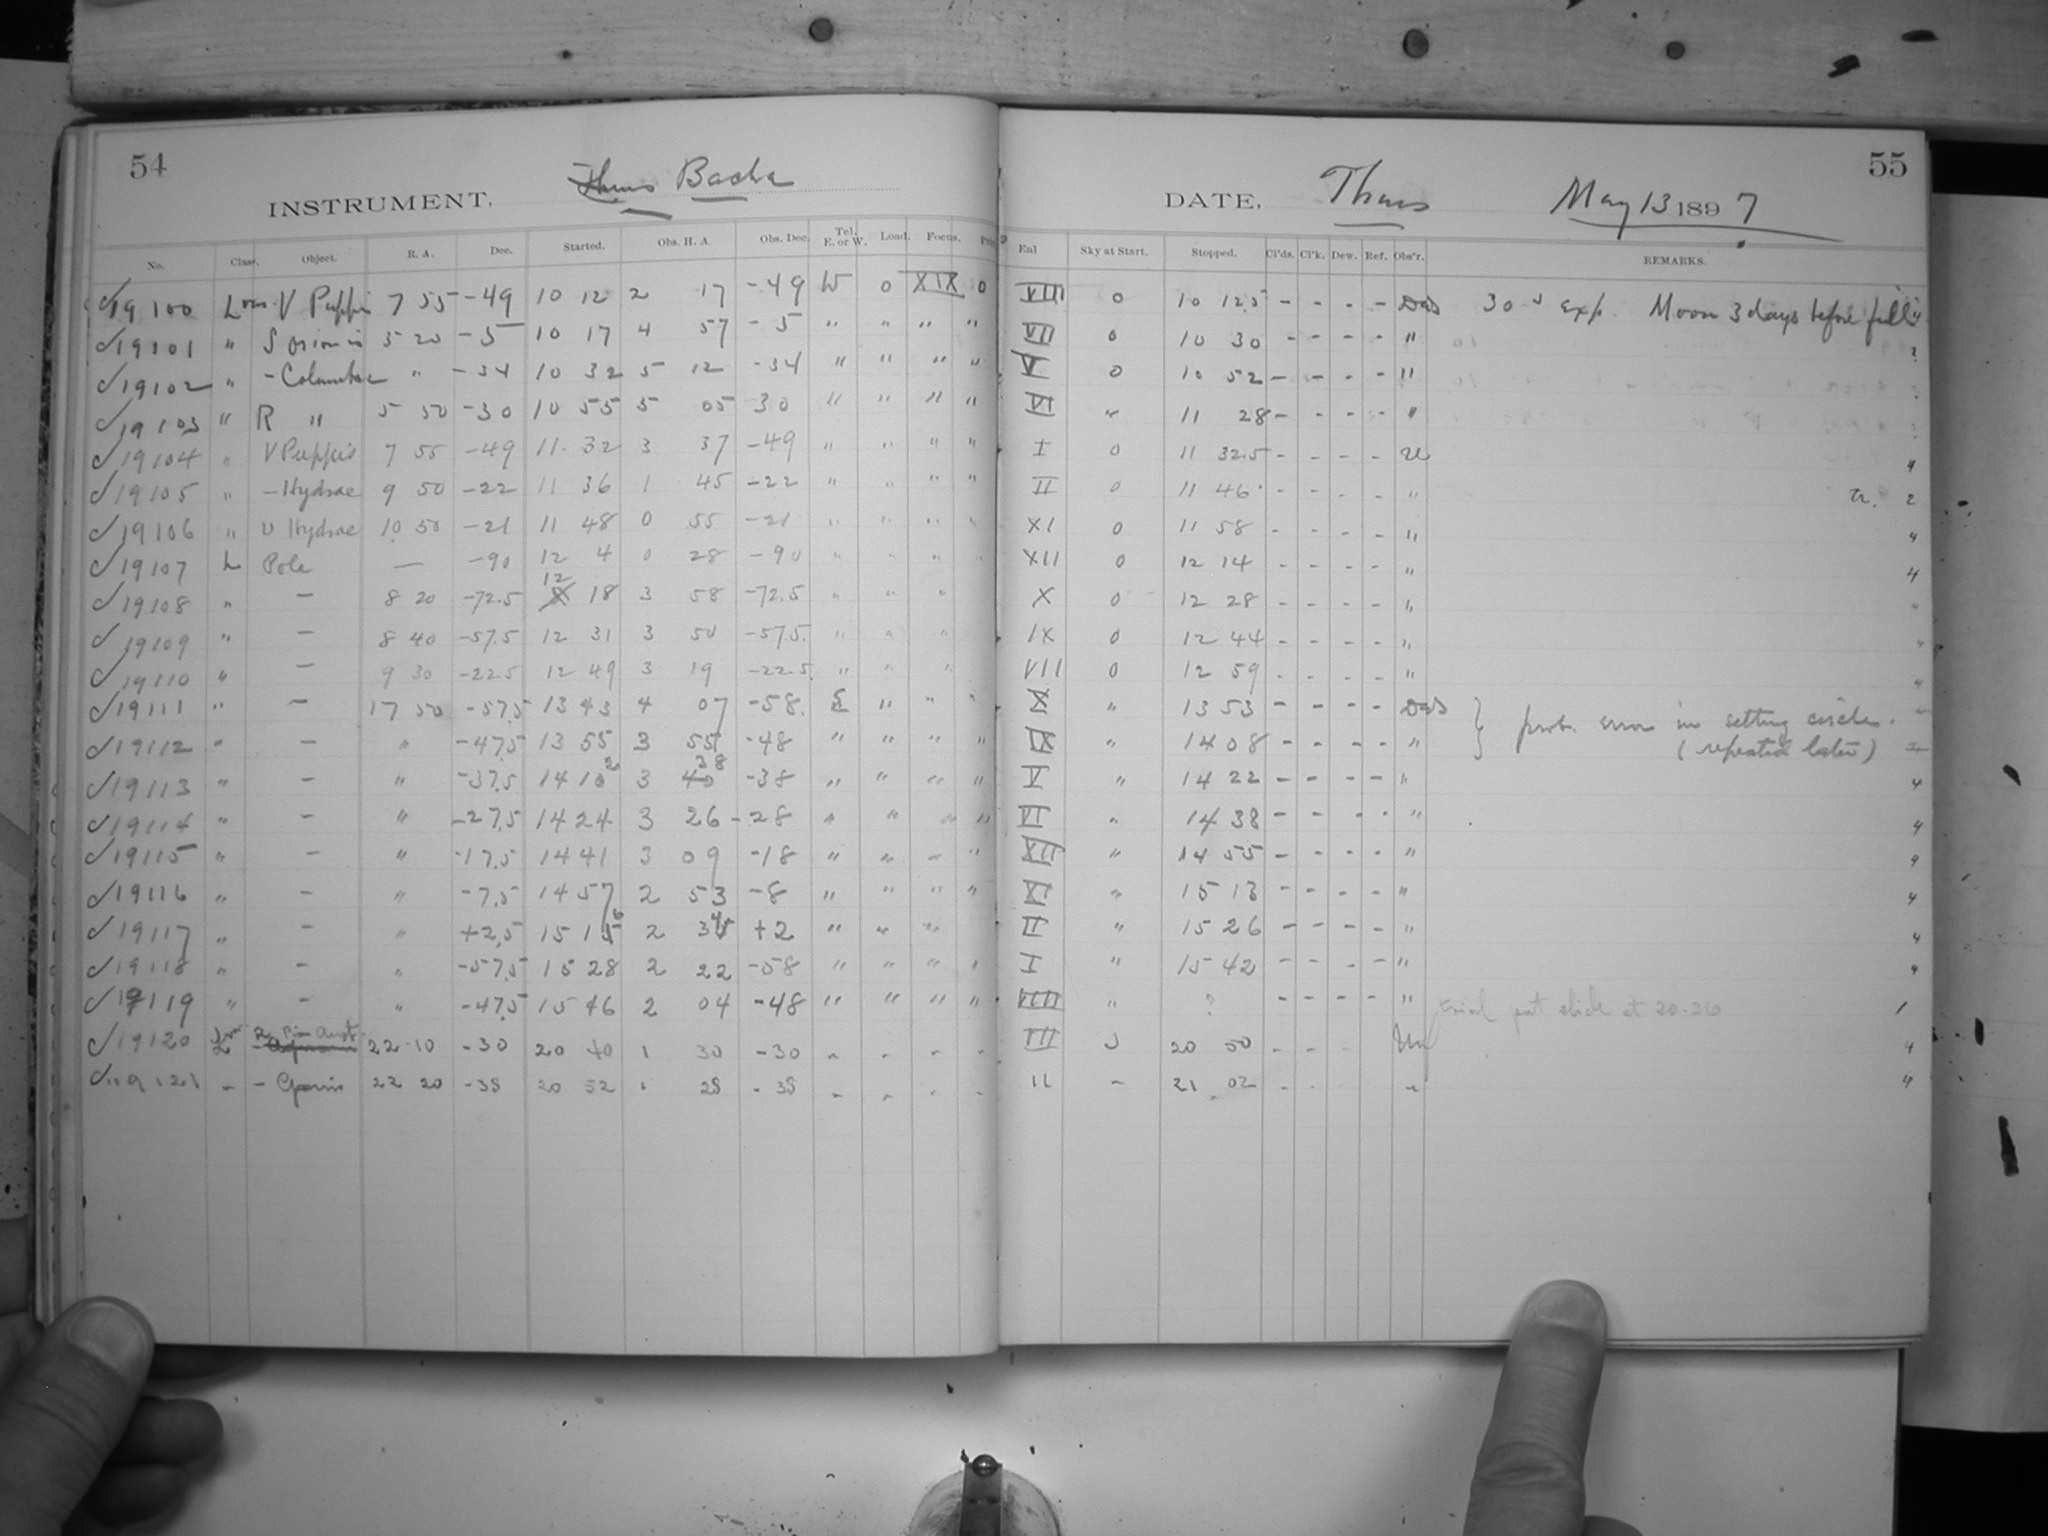 54
INSTRUMENT, Thurs Bache
No. Class. Object. R. A. Dec. Started. Obs. H. A. Obs. Dec. Tel. E. or W. Load. Focus.
19100 V Puppis 7 55 -49 10 12 2 17 -49 W 0 XIX 0
19101 " S Orionis 5 20 -5 10 17 4 57 -5 " " " "
19102 " - Columbae " -34 10 32 5 12 -34 " " " "
19103 " R " 5 50 -30 10 55 5 05 30 " " " "
19104 " V Puppis 7 55 -49 11 32 3 37 -49 " " " "
19105 " - Hydrae 9 50 -22 11 36 1 45 -22 " " " "
19106 " U Hydrae 10 50 -21 11 48 0 55 -21 " " " "
19107 L Pole — -90 12 4 0 28 -90 " " "
19108 " — 8 20 -72.5 12 18 3 58 -72.5 " " "
19109 " — 8 40 -57.5 12 31 3 50 -57.5 " " "
19110 " — 9 30 -22.5 12 49 3 19 -22.5 " " "
19111 " — 17 50 -57.5 13 43 4 07 -58 E " " "
19112 " — " -47.5 13 55 3 55 -48 " " " "
19113 " — " -37.5 14 12 3 38 -38 " " " "
19114 " — " -27.5 14 24 3 26 -28 " " " "
19115 " — " -17.5 14 41 3 09 -18 " " " "
19116 " — " -7.5 14 57 2 53 -8 " " " "
19117 " — " +2.5 15 16 2 34 +2 " " "
19118 " — " -57.5 15 28 2 22 -58 " " " "
19119 " — " -47.5 15 46 2 04 -48 " " " "
19120 22 10 -30 20 40 1 30 -30 " " " "
19121 " - Gruis 22 20 -38 20 52 1 28 -38 " " " "
55
DATE, Thurs May 13 1897
Enl Sky at Start. Stopped. Cl'ds. Cl'k. Dew. Ref. Obs'r. REMARKS.
VIII 0 10 12.5 - - - - 30s exp. Moon 3 days before full 4
VII 0 10 30 - - - - "
V 0 10 52 - - - - "
VI " 11 28 - - - - "
I 0 11 32.5 - - - - 4
II 0 11 46 - - - - " tr. 2
XI 0 11 58 - - - - " 4
XII 0 12 14 - - - - " 4
X 0 12 28 - - - - " "
IX 0 12 44 - - - - " "
VII 0 12 59 - - - - " "
X " 13 53 - - - - } prob. error in setting circle. "
IX " 14 08 - - - - " (repeated later)
V " 14 22 - - - - " 4
VI " 14 38 - - - - " 4
XII " 14 55 - - - - " 4
XI " 15 13 - - - - " 4
II " 15 26 - - - - " 4
I " 15 42 - - - - " 4
VIII " ? - - - - " trial put slide at 20.36 1
20 50 - - - 4
II - 21 02 - - - " 4